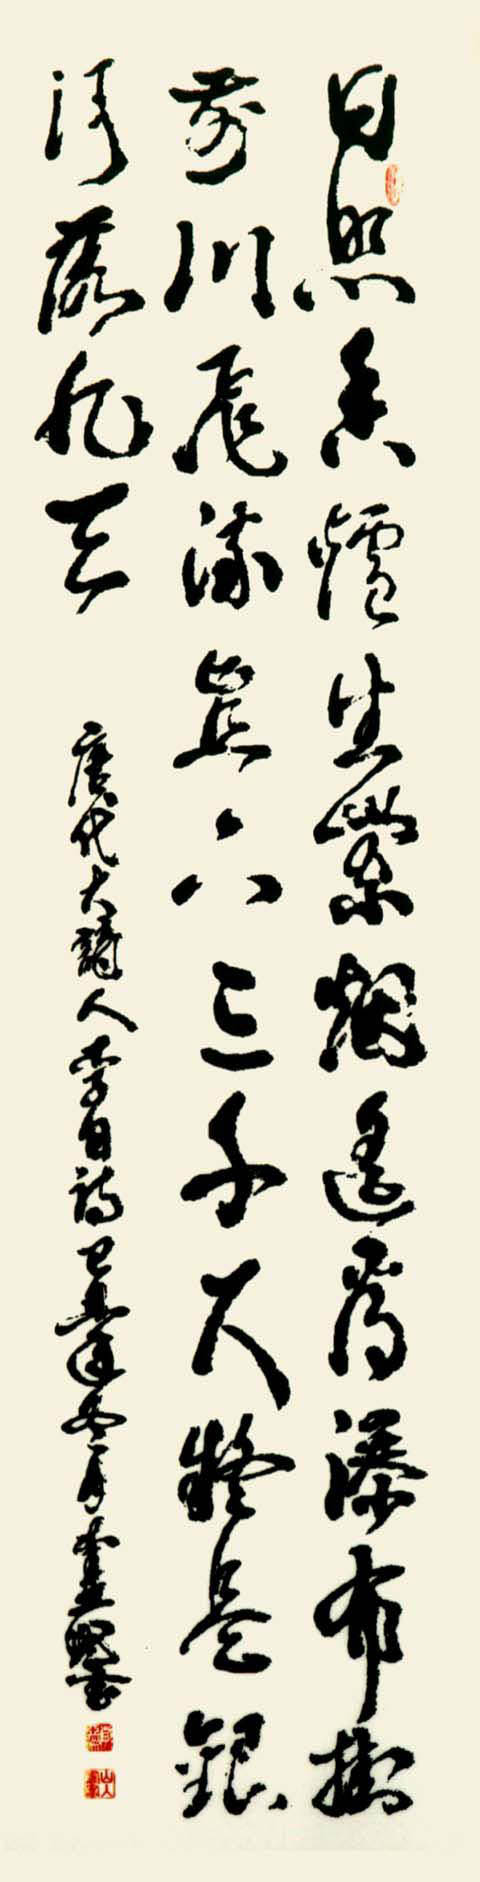 日照香爐生紫烟遙看瀑布掛
前川飛流直下三千尺疑是銀
河落九天
唐代大詩人李白詩己丑年冬月